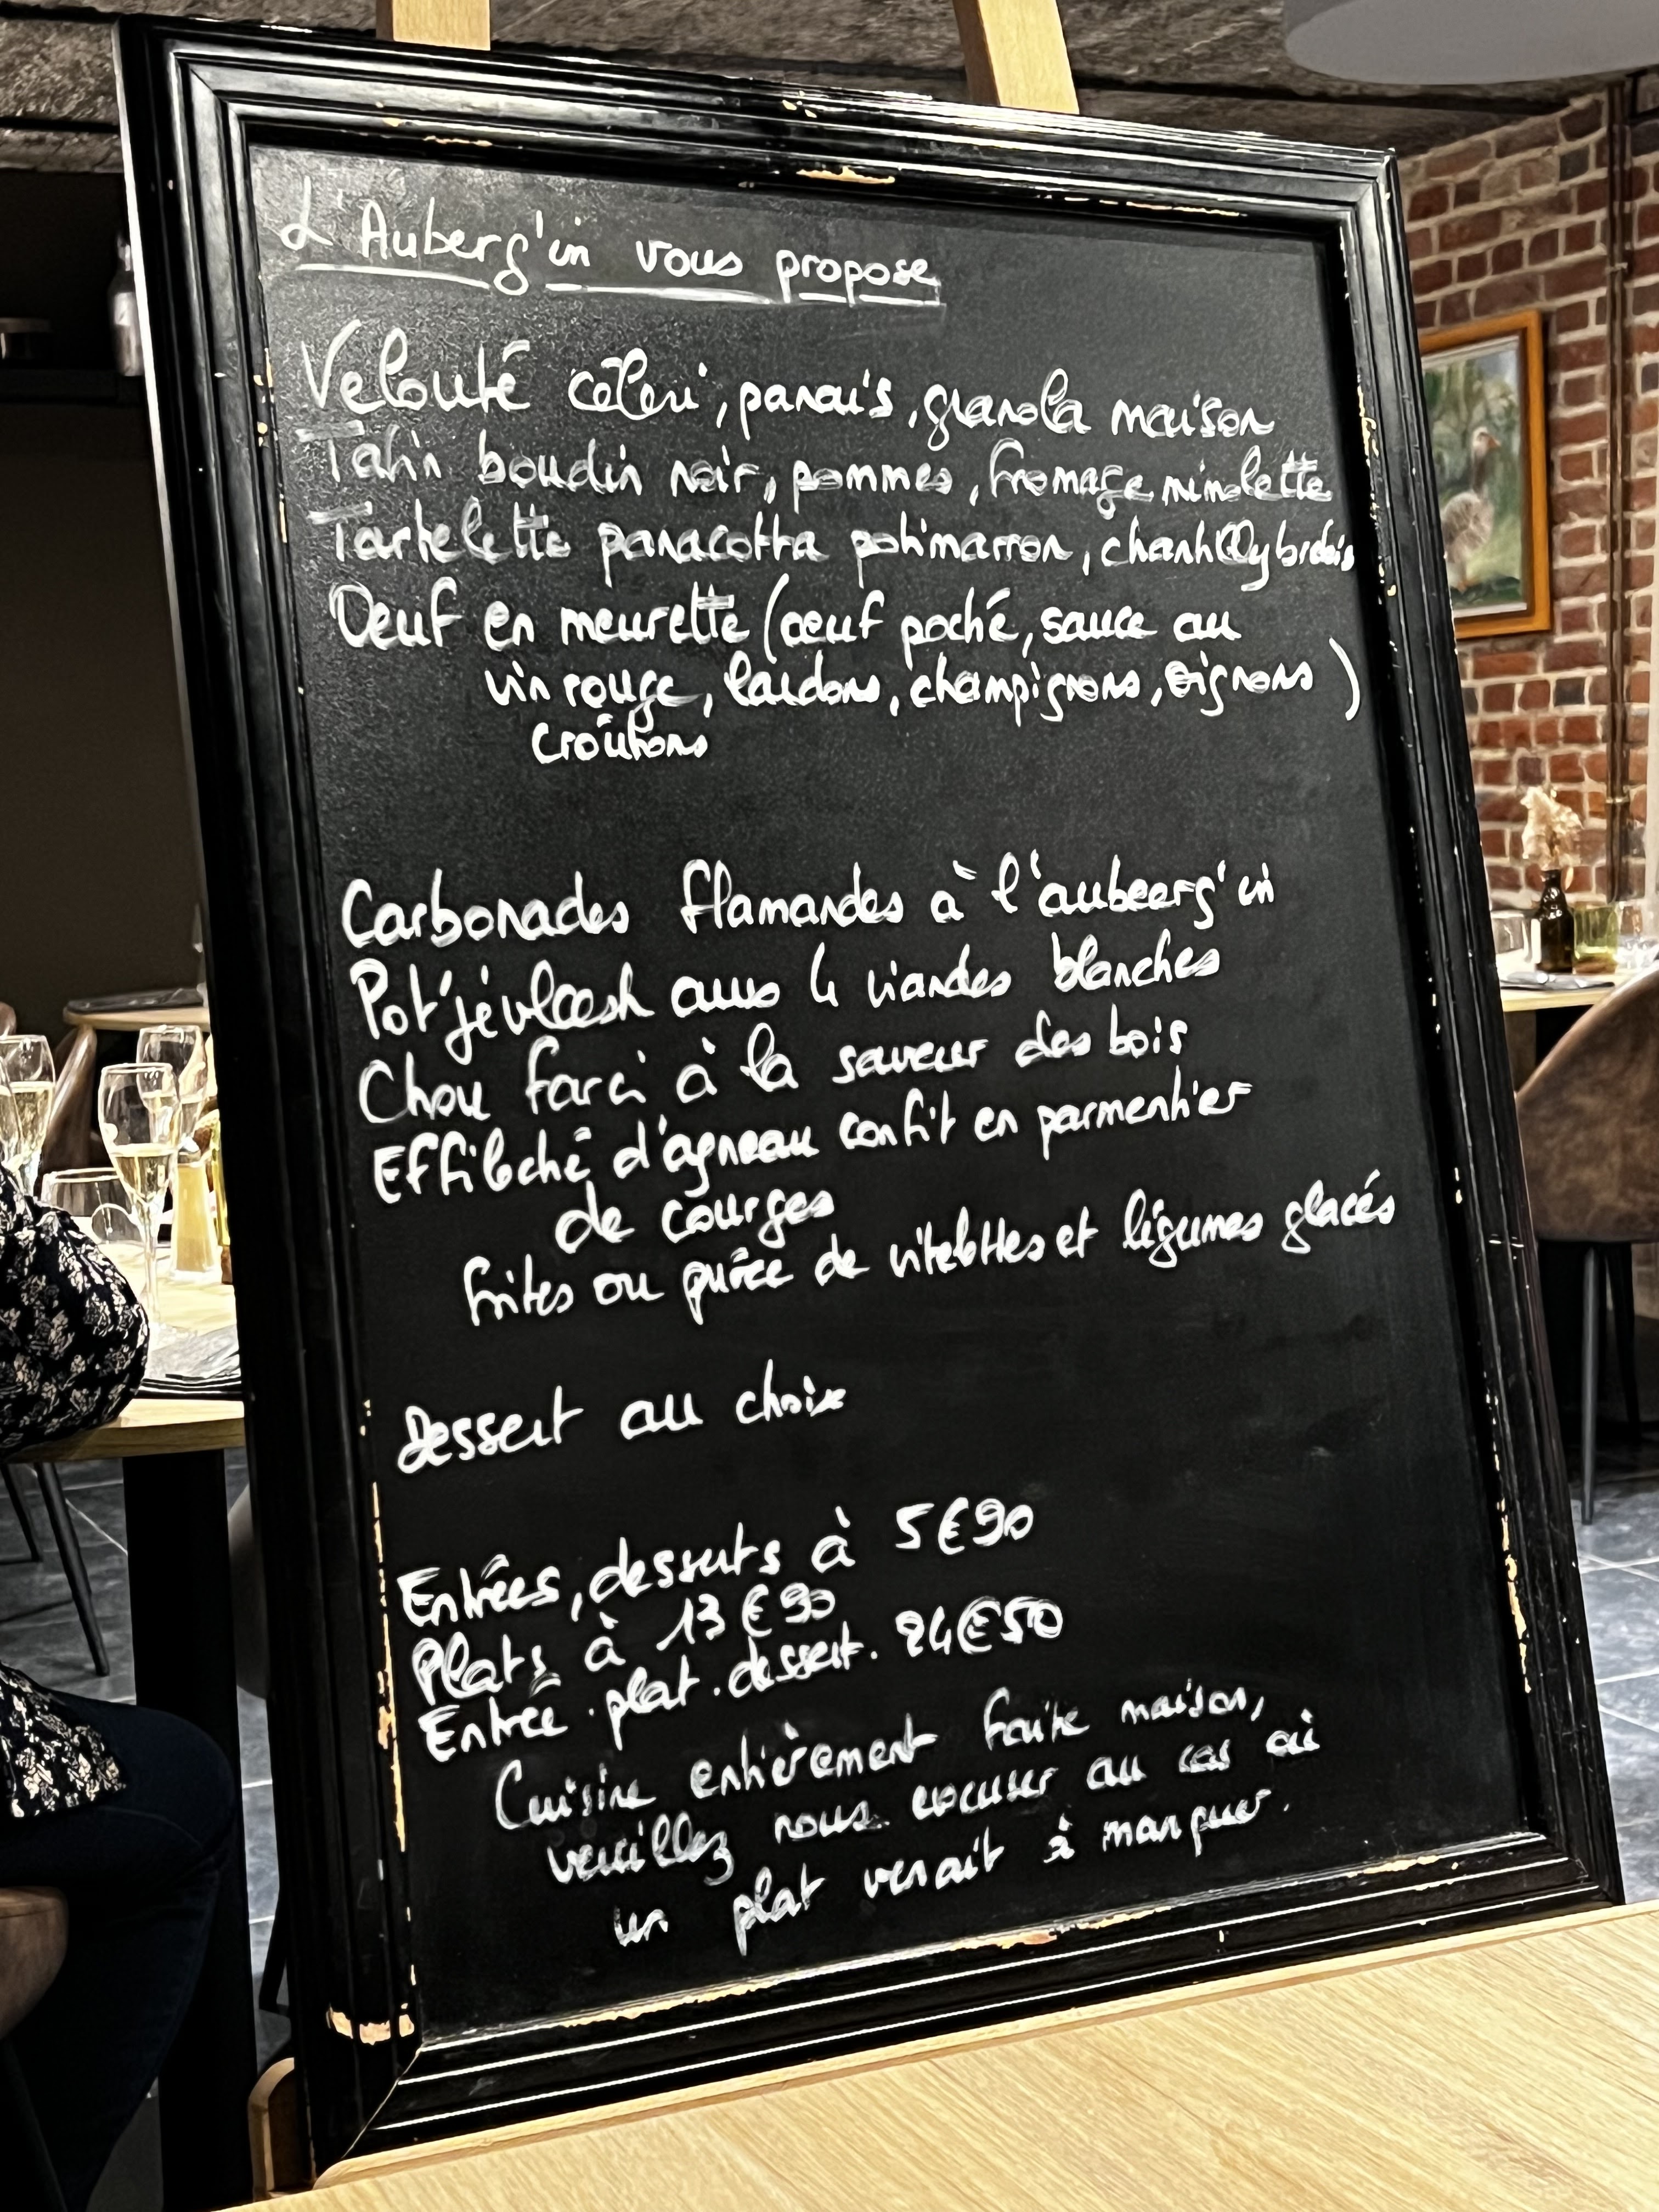 L'Auberg'in vous propose
Velouté céleri, panais, granola maison
Tatin boudin noir, pommes, fromage mimolette
Tartelette panacotta potimarron, chantilly brebis
Oeuf en meurette (oeuf poché, sauce au
vin rouge, lardons, champignons, oignons)
croûtons
Carbonades flamandes à l'aubeerg'in
Pot'jévleesh aux 4 viandes blanches
Chou farci à la saveur des bois
Effiloché d'agneau confit en parmentier
de courges
frites ou purée de vitelottes et légumes glacés
Dessert au choix
Entrées, desserts à 5€90
Plats à 13€90
Entrée . plat . dessert . 24€50
Cuisine entièrement faite maison,
veuillez nous excuser au cas où
un plat venait à manquer.